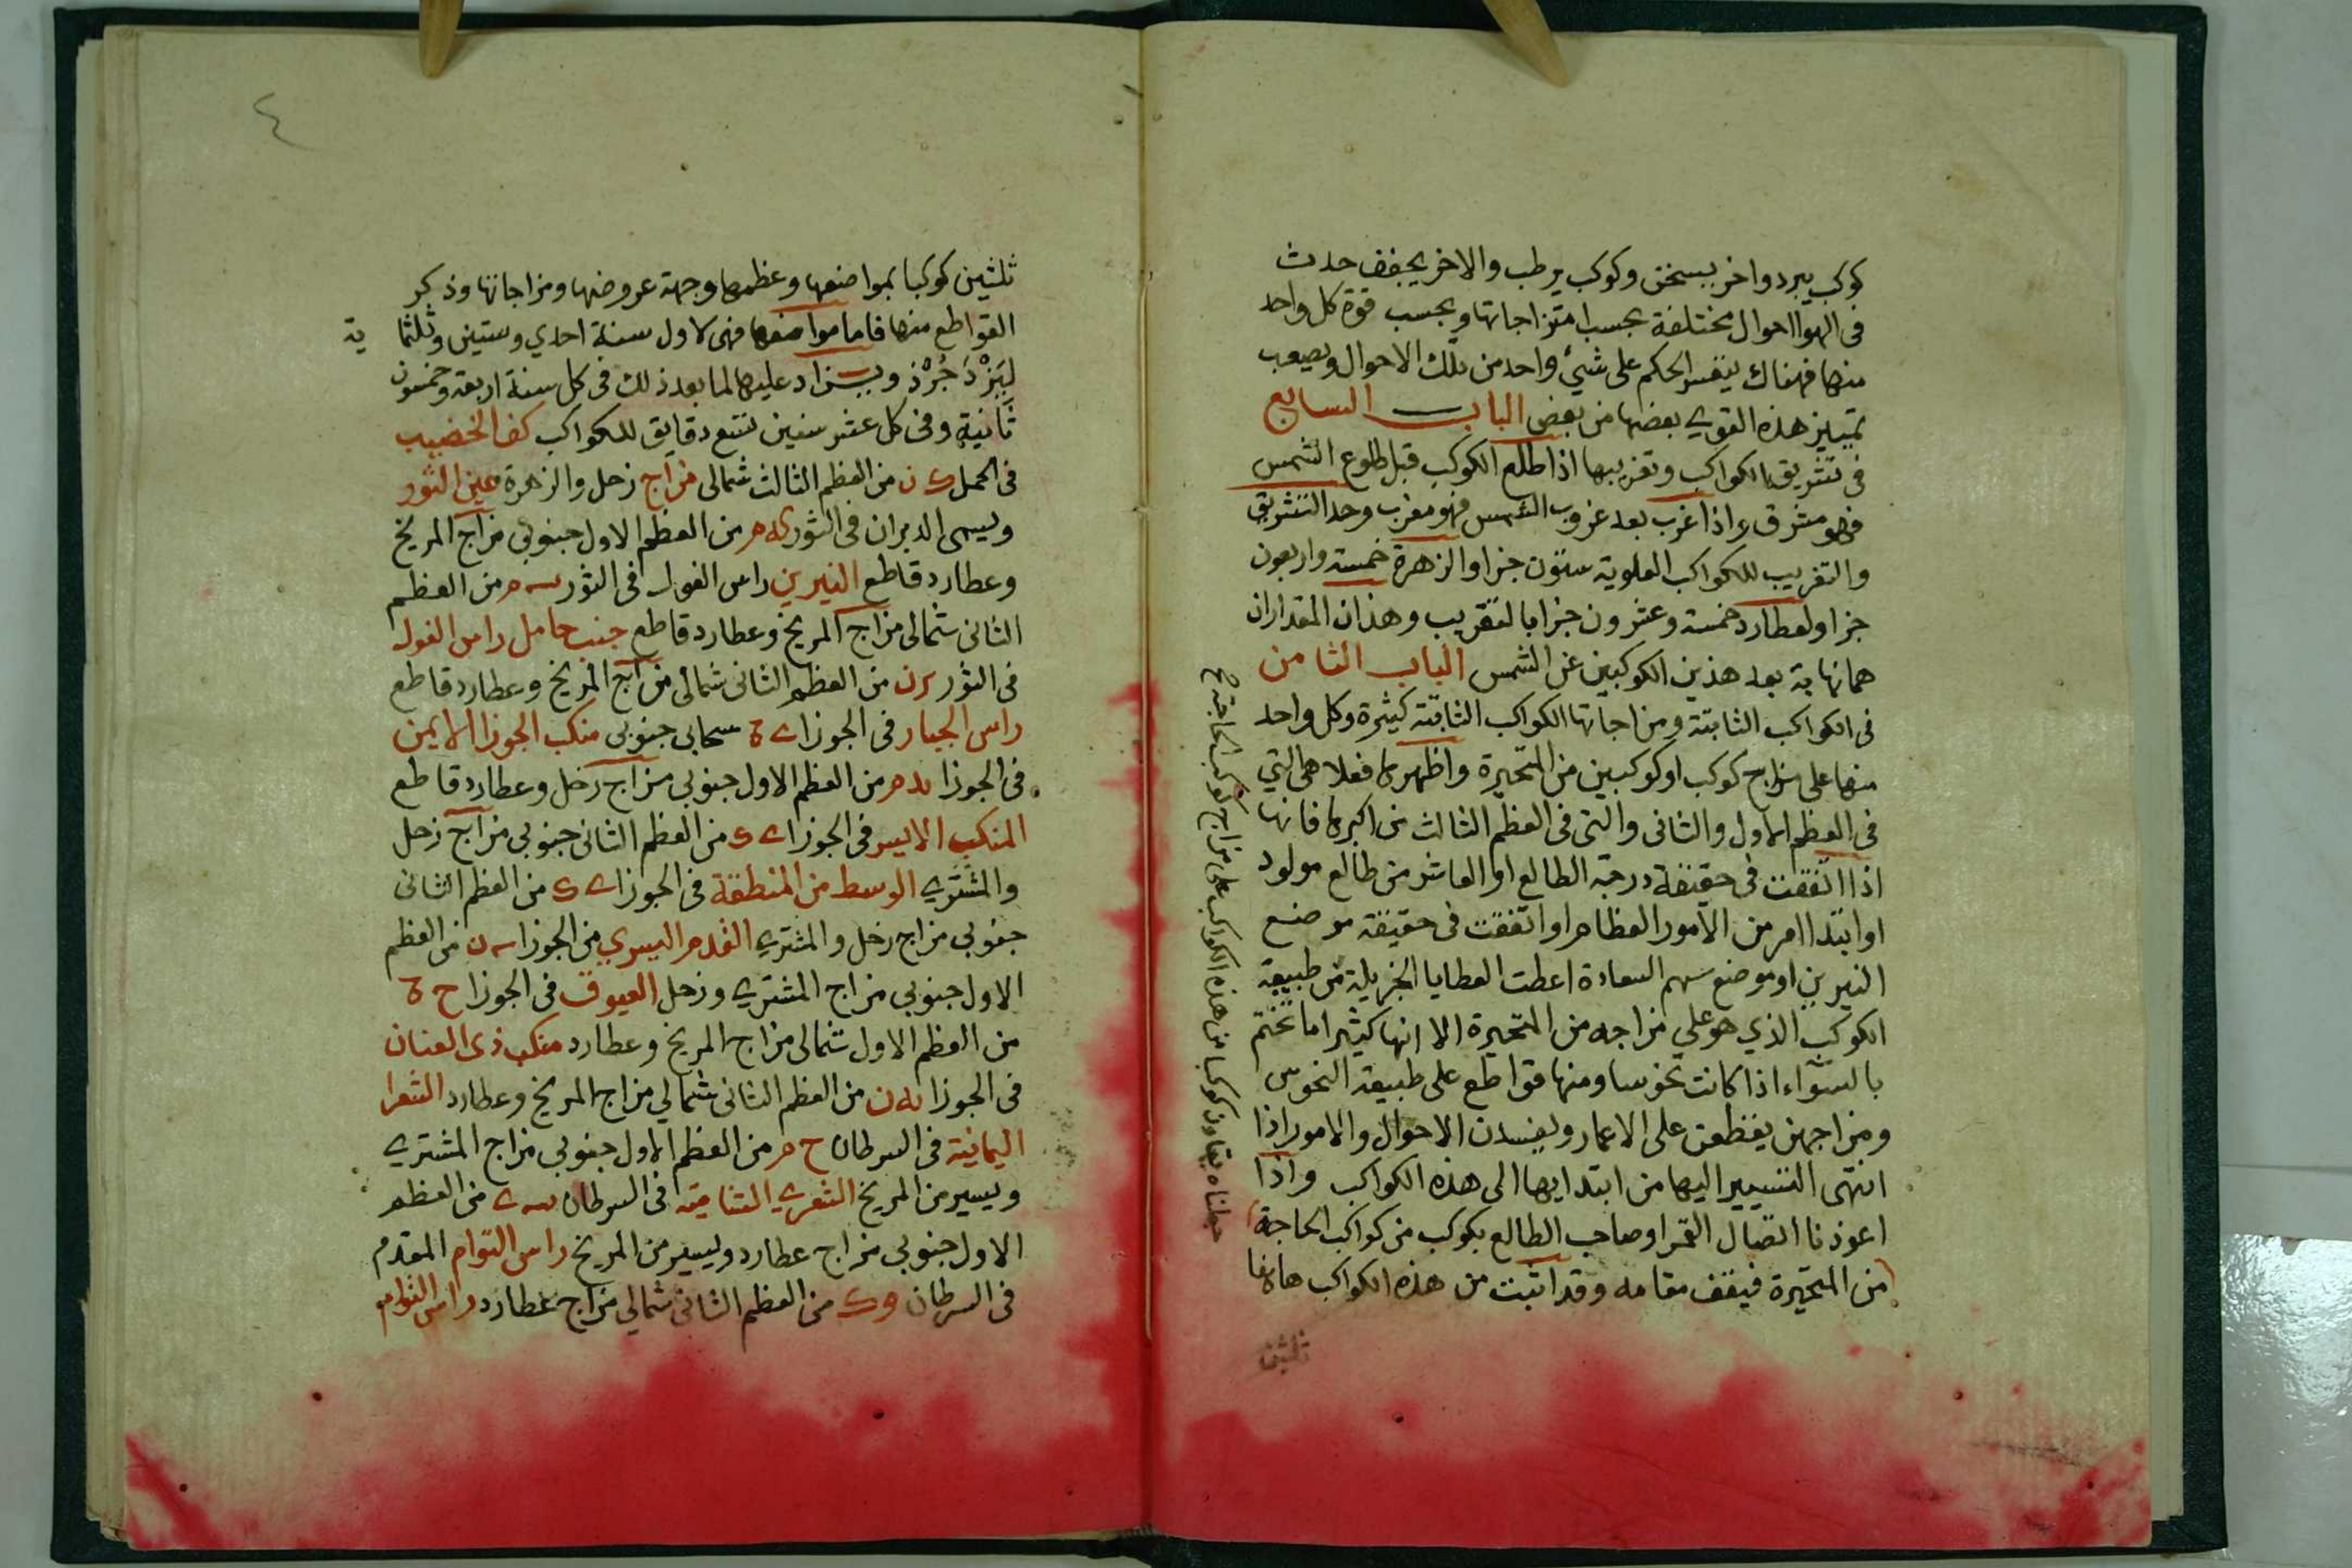 كوكب يبرد واخر يسخن وكوكب يرطب والاخر يجفف حدث
فى الهوا احوال مختلفة بحسب امتزاجاتها وبحسب قوة كل واحد
منها فهناك يتعسر الحكم على شيء واحد من تلك الاحوال ويصعب
تمييز هذه القوي بعضها من بعض الباب السابع
فى تشريق الكواكب وتغريبها اذا طلع الكوكب قبل طلوع الشمس
فهو مشرق واذا غرب بعد غروب الشمس فهو مغرب وحد التشريق
والتغريب للكواكب العلوية ستون جزا والزهرة خمسة واربعون
جزا ولعطارد خمسة وعشرون جزا بالتقريب وهذان المقداران
هما نهاية بعد هذين الكوكبين عن الشمس الباب الثامن
فى الكواكب الثابتة ومزاجاتها الكواكب الثابتة كثيرة وكل واحد
منها على مزاج كوكب او كوكبين من المتحيرة واظهرها فعلا هى التي
فى العظم الاول والثانى والتى فى العظم الثالث من اكبرها فانها
اذا اتفقت فى حقيقة درجة الطالع او العاشر من طالع مولود
او ابتدا امر من الامور العظام او اتفقت فى حقيقة موضع
النيرين او موضع سهم السعادة اعطت العطايا الجزيلة من طبيعة
الكوكب الذي هو على مزاجه من المتحيرة الا انها كثيرا ما تختم
بالسوٓاء اذا كانت نحوسا ومنها قواطع على طبيعة النحوس
ومزاجهن يقطعن على الاعمار ويفسدن الاحوال والامور اذا
انتهى التسيير اليها من ابتدايها الى هذه الكواكب واذا
اعوذنا اتصال القمر او صاحب الطالع بكوكب من كواكب الحاجة
من المتحيرة فيقف مقامه وقد اثبت من هذه الكواكب هاهنا
ثلثين
٤
ثلثين كوكبا بمواضعها وعظمها وجهة عروضها ومزاجاتها وذكر
القواطع منها فاما مواضعها فهى لاول سنة احدي وستين وثلثما ية
ليَزْدَجُرْدْ ويزاد عليها لما بعد ذلك فى كل سنة اربعة وخمسون
ثانية وفى كل عشر سنين تسع دقايق للكواكب كف الخضيب
فى الحمل ك ن من العظم الثالث شمالى مزاج زحل والزهرة عين الثور
ويسمى الدبران فى الثور كه م من العظم الاول جنوبي مزاج المريخ
وعطارد قاطع النيرين راس الغول فى الثور م من العظم
الثانى شمالى مزاج المريخ وعطارد قاطع جنب حامل راس الغول
فى الثور ن من العظم الثانى شمالى مزاج المريخ وعطارد قاطع
راس الجبار فى الجوزا سحابى جنوبى منكب الجوزا الايمن
فى الجوزا يد م من العظم الاول جنوبي مزاج زحل وعطارد قاطع
المنكب الايسر فى الجوزا من العظم الثانى جنوبي مزاج زحل
والمشتري الوسط من المنطقة فى الجوزا من العظم الثانى
جنوبي مزاج زحل والمشتري القدم اليسري من الجوزا ن من العظم
الاول جنوبي مزاج المشتري وزحل العيوق فى الجوزا ح
من العظم الاول شمالى مزاج المريخ وعطارد منكب ذى العنان
فى الجوزا يه ن من العظم الثانى شمالي مزاج المريخ وعطارد الشعرا
اليمانية فى السرطان ح م من العظم الاول جنوبي مزاج المشتري
ويسير من المريخ الشعري الشامية فى السرطان من العظم
الاول جنوبي مزاج عطارد ويسير من المريخ راس التوام المقدم
فى السرطان من العظم الثانى شمالي مزاج عطارد راس التوام